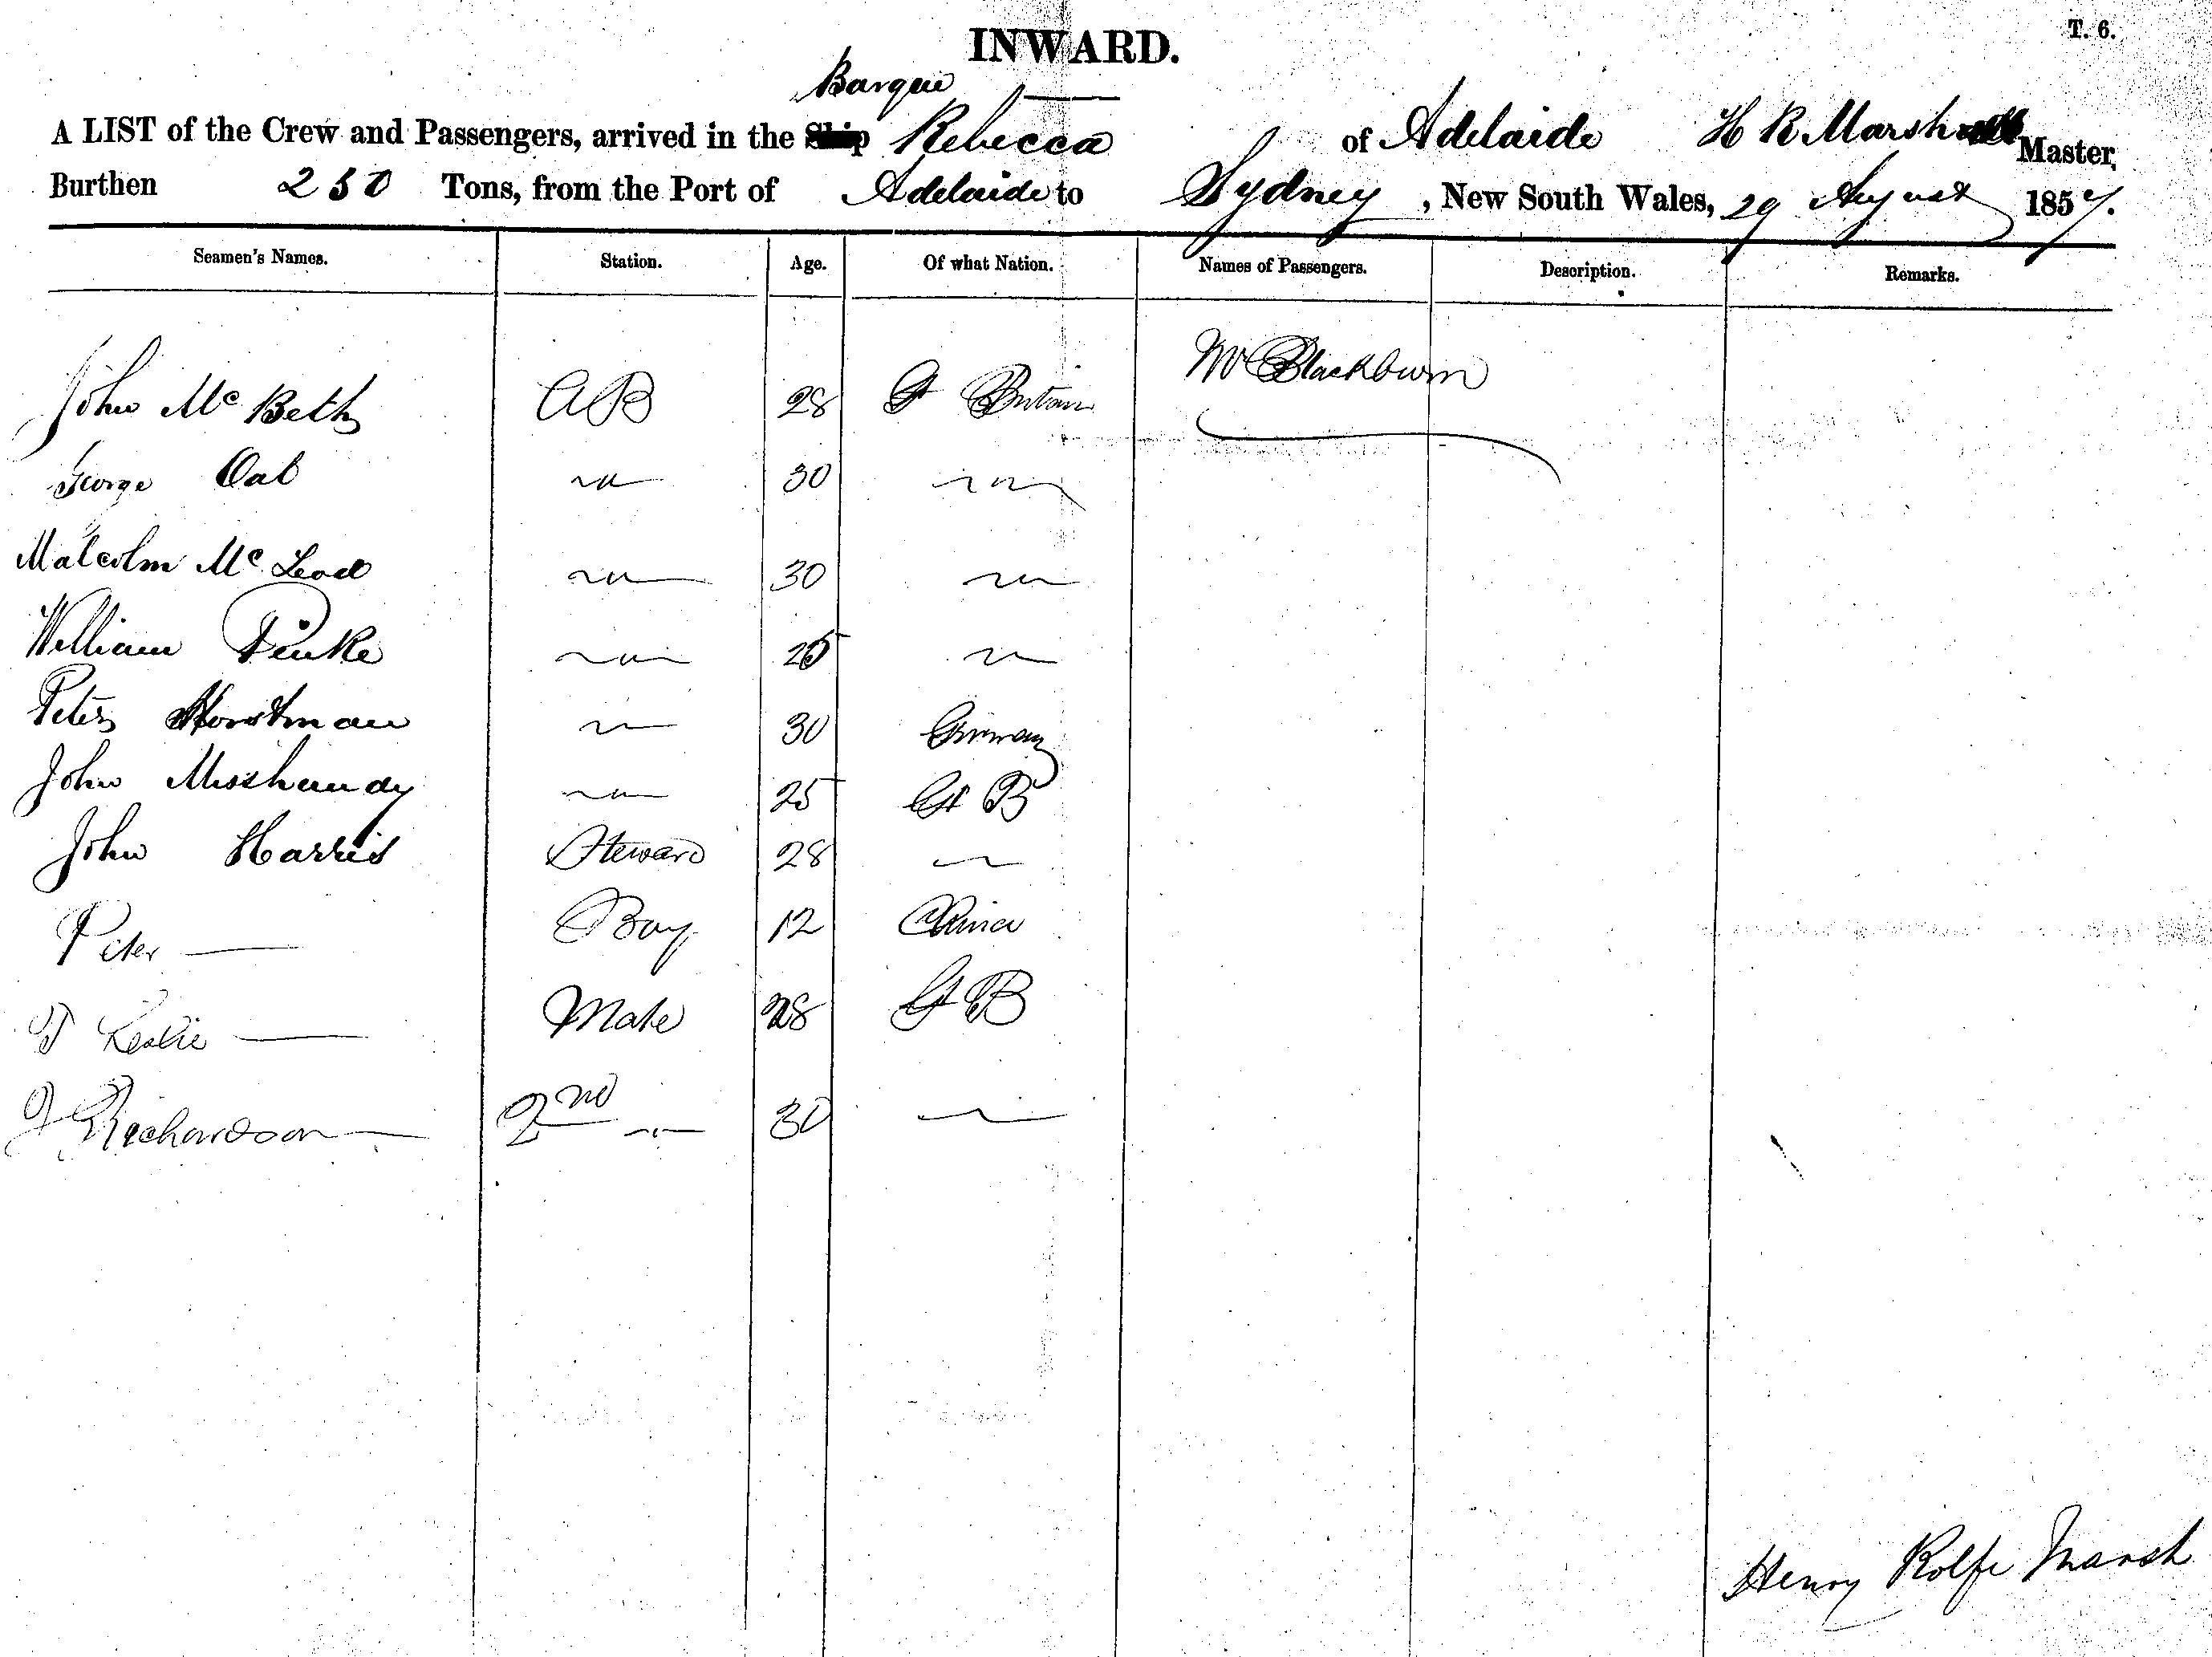 T. 6.
INWARD.
Barque
A LIST of the Crew and Passengers, arrived in the Ship Rebecca of Adelaide H R Marsh Master,
Burthen 250 Tons, from the Port of Adelaide to Sydney, New South Wales, 29 August 1857.
Seamen's Names. Station. Age. Of what Nation. Names of Passengers. Description. Remarks.
John Mc Beth AB 28 Gt Britain Mr Blackburn
George Oat 〃 30 〃
Malcolm Mc Leod 〃 30 〃
William 〃 25 〃
Peter Horstman 〃 30 Germany
John 〃 25 Gt B
John Harris Steward 28 〃
Peter — Boy 12 China
Leslie — Mate 28 Gt B
J Richardson — 2nd 〃 30 〃
Henry Rolfe Marsh